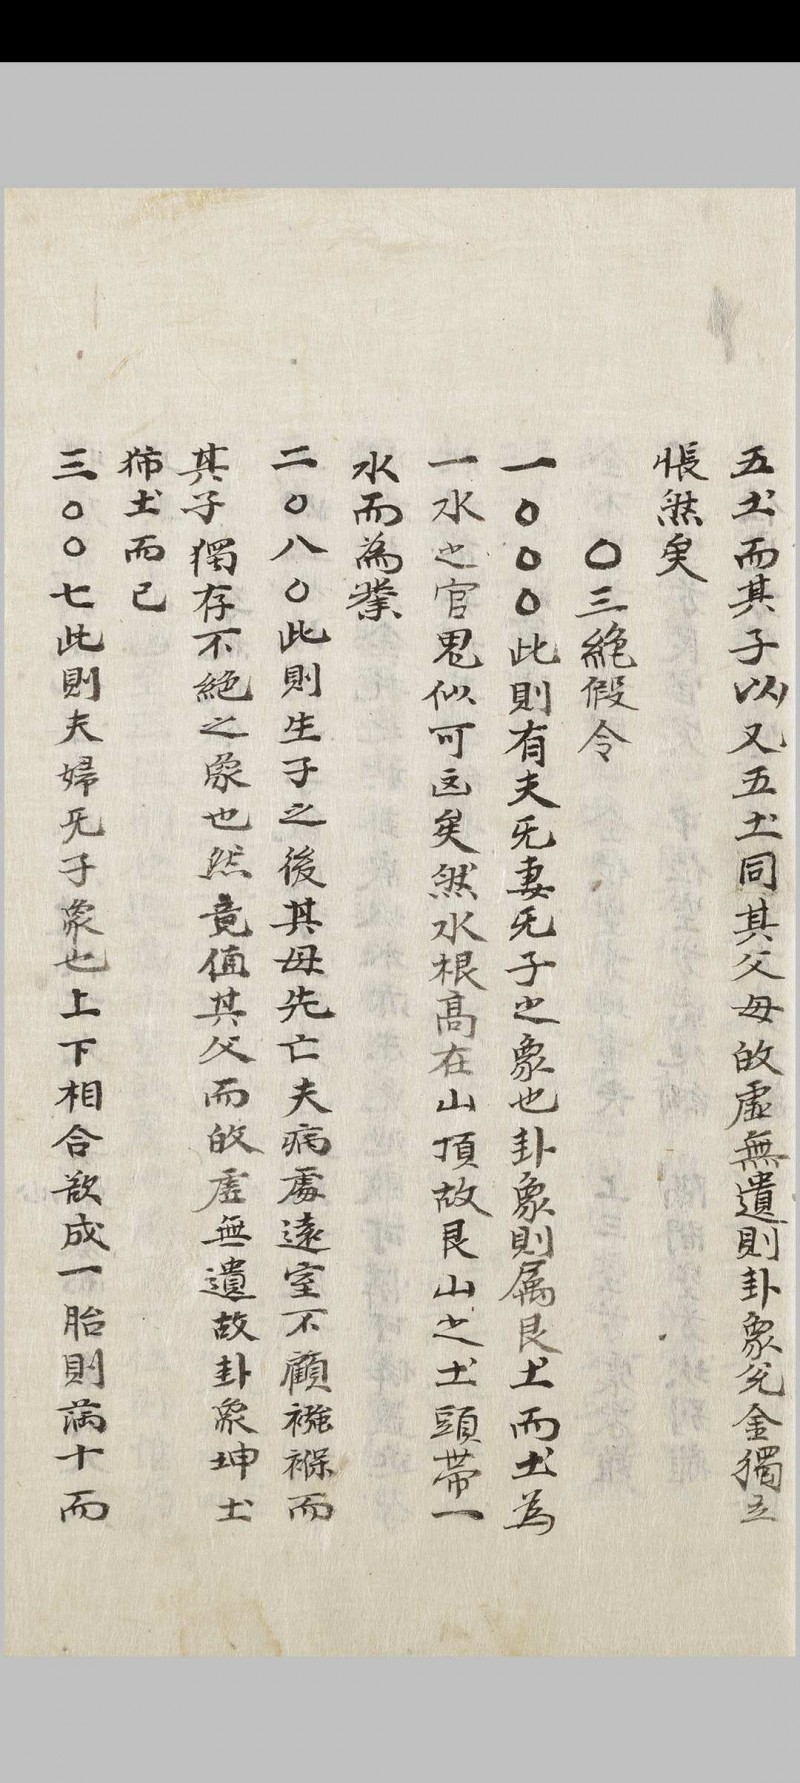 五土而其子以又五土同其父母的虛無遺則卦象兊金獨立
悵然矣
〇三絕假令
一〇〇〇此則有夫旡妻旡子之象也卦象則属艮土而土為
一水之官鬼似可〇矣然水根高在山頂故艮山之土頭帶一
水而為業
二〇八〇此則生子之後其母先亡夫病處遠室不顧襁褓而
其子獨存不絕之象也然竟值其父而的虛無遺故卦象坤土
土而已
三〇〇七此則夫婦旡子象也上下相合欲成一胎則滿十而